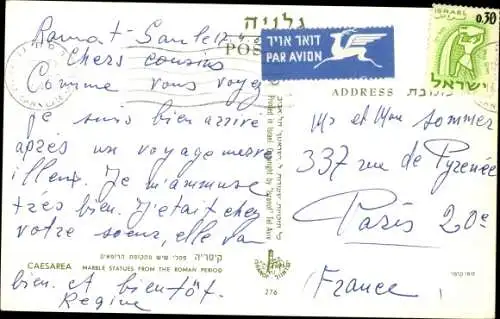 גלויה
Ramat-
chers cousins
Comme vous voyez
Je suis bien arrivé
après un voyage merve
illeux. Je m'amuse
très bien. J'etait chez
votre soeur, elle va
קיסריה פסלי שיש מתקופת הרומאים
CAESAREA MARBLE STATUES FROM THE ROMAN PERIOD
bien. et bientôt.
Regine
276
POS
דואר אויר
PAR AVION
ISRAEL
0.30
ישראל
ADDRESS כתובת
Mr et Mme Sommer
337 rue de Pyrénée
Paris 20e
(France)